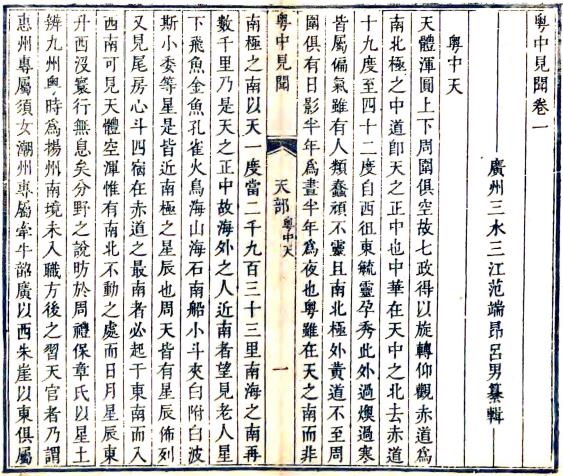 粵中見聞卷一
廣州三水三江范端昂呂男纂輯
粵中天
天體渾圓上下周圍俱空故七政得以旋轉仰觀赤道爲
南北極之中道卽天之正中也中華在天中之北去赤道
十九度至四十二度自西徂東毓靈孕秀此外過燠過寒
皆屬偏氣雖有人類蠢頑不靈且南北極外黃道不至周
圍俱有日影半年爲晝半年爲夜也粵雖在天之南而非
粵中見聞
天部 粵中天
一
南極之南以天一度當二千九百三十三里南海之南再
數千里乃是天之正中故海外之人近南者望見老人星
下飛魚金魚孔雀火鳥海山海石南船小斗夾白附白波
斯小委等星是皆近南極之星辰也周天皆有星辰佈列
又見尾房心斗四宿在赤道之最南者必起于東南而入
西南可見天體空渾惟有南北不動之處而日月星辰東
升西沒寰行無息矣分野之說昉於周禮保章氏以星土
辨九州輿時爲揚州南境未入職方後之習天官者乃謂
惠州專屬須女潮州專屬牽牛韶廣以西朱崖以東俱屬